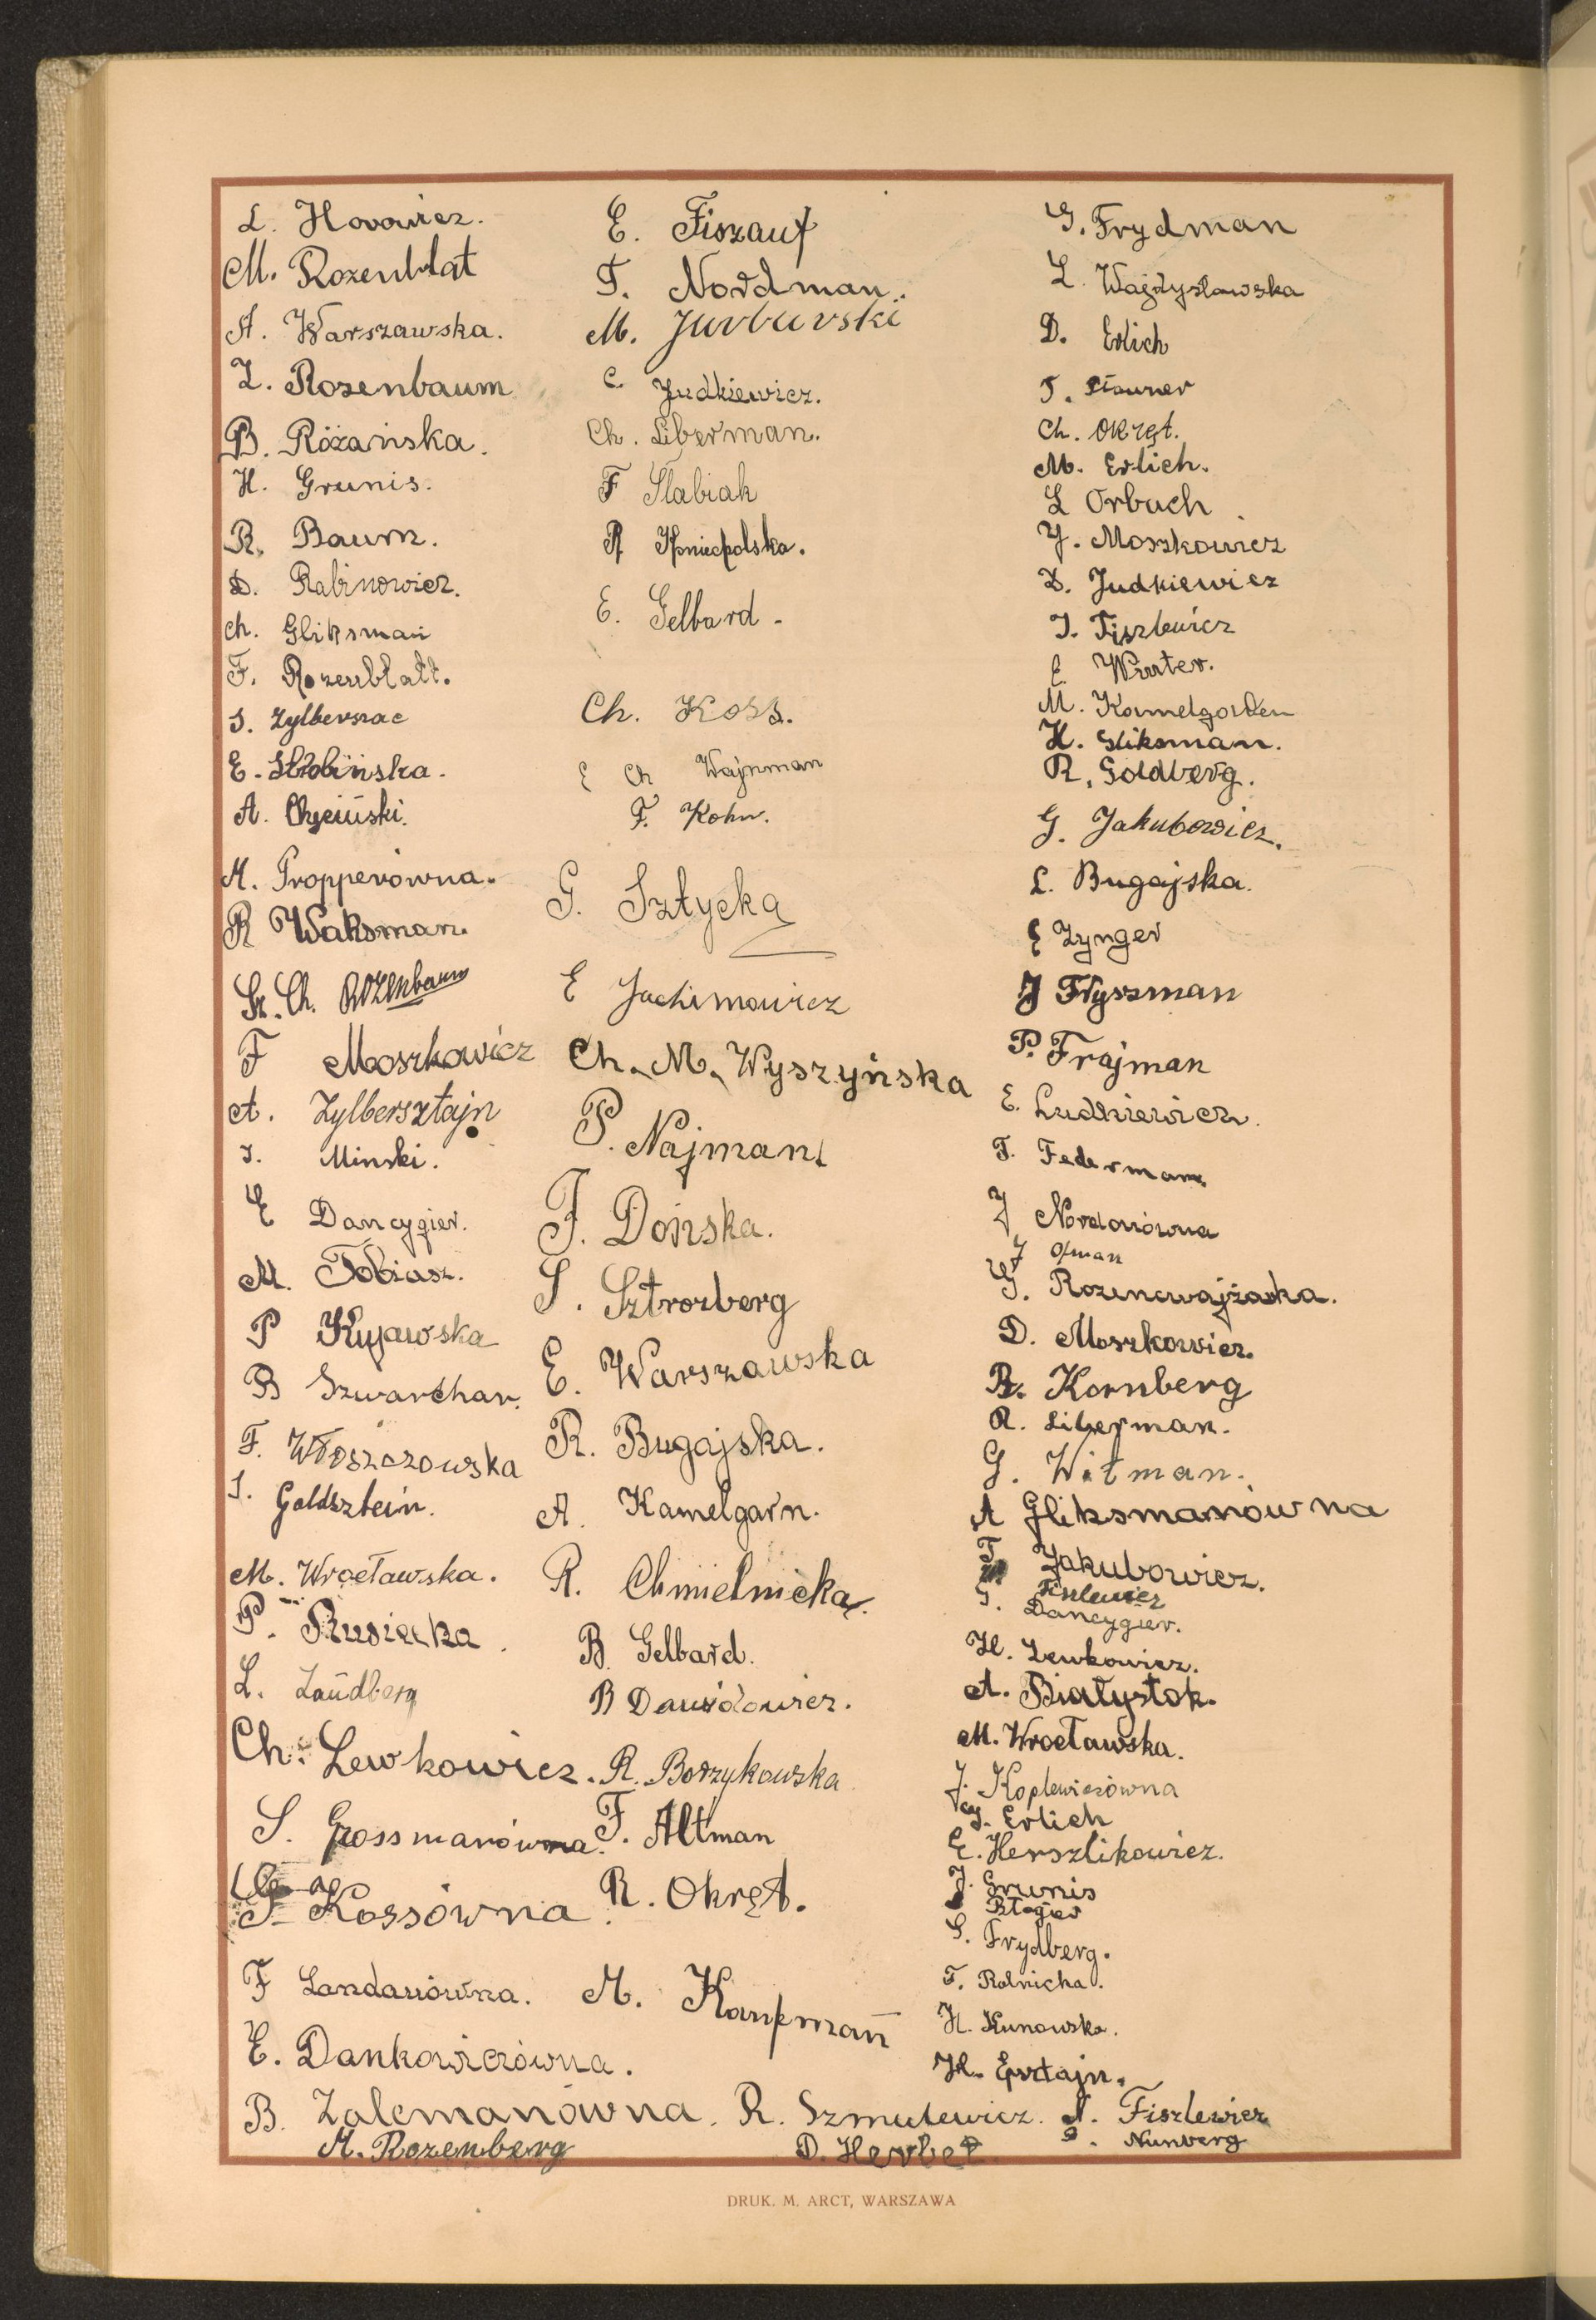 L. Horowicz.
M. Rozenblat
A. Warszawska.
Z. Rozenbaum
B. Różańska.
H. Grunis.
R. Baum.
D. Rabinowicz.
Ch. Gliksman
F. Rozenblatt.
S. Zylberszac
E.
A. Chęciński.
M. Propperówna.
R Waksman.
Sz. Ch. Rozenbaum
F Moszkowicz
A. Zylbersztajn
I. Minski.
E Dancygier.
M. Tobiasz.
P Kujawska
B Szwarchar.
F. Włoszczowska
I. Goldsztein.
M. Wrocławska.
P. Rusiecka.
L. Landberg
Ch. Lewkowicz.
S. Grossmanówna.
Kossówna.
F Landauówna.
E. Dankowiczówna.
B. Zalcmanówna.
M. Rozenberg
E. Fiszauf
T. Nordman.
M. Jurburski
C. Judkiewicz.
Ch. Liberman.
F Słabiak
R Koniecpolska.
E. Gelbard.
Ch. Koss.
E Ch Wajnman
F. Kohn.
G. Sztycka
E Jachimowicz
Ch. M. Wyszyńska
P. Najman.
F. Dońska.
S. Sztrozberg
E. Warszawska
R. Bugajska.
A. Kamelgarn.
R. Chmielnicka.
B. Gelbard.
B Dawidowicz.
R. Borzykowska
F. Altman
R. Okręt.
M. Kaufman
R. Szmulewicz.
D. Herbet
G. Frydman
L. Wajdysławska
D. Erlich
T.
Ch. Okręt.
M. Erlich.
L Orbach
J. Moszkowicz
D. Judkiewicz
I. Fiszlewicz
E Winter.
M. Kamelgarten
H. Gliksman.
R. Goldberg.
G. Jakubowicz.
L. Bugajska.
E Zynger
J Fryszman
P. Frajman
E. Ludkiewicz.
T. Federman
J Nordonówna
J Ofman
G. Rozencwajżanka.
D. Moszkowicz.
R. Kornberg
R. Liberman.
G. Witman.
A Gliksmanówna
T Jakubowicz.
Fiszlewicz
S. Dancygier.
H. Lewkowicz.
A. Białystok.
M. Wrocławska.
J. Koplewiczówna
Erlich
E. Herszlikowicz.
J. Grunis
S. Frydberg.
F. Rolnicka.
H. Kunowska.
H. Epsztajn.
A. Fiszlewicz
Nunberg
DRUK. M. ARCT, WARSZAWA